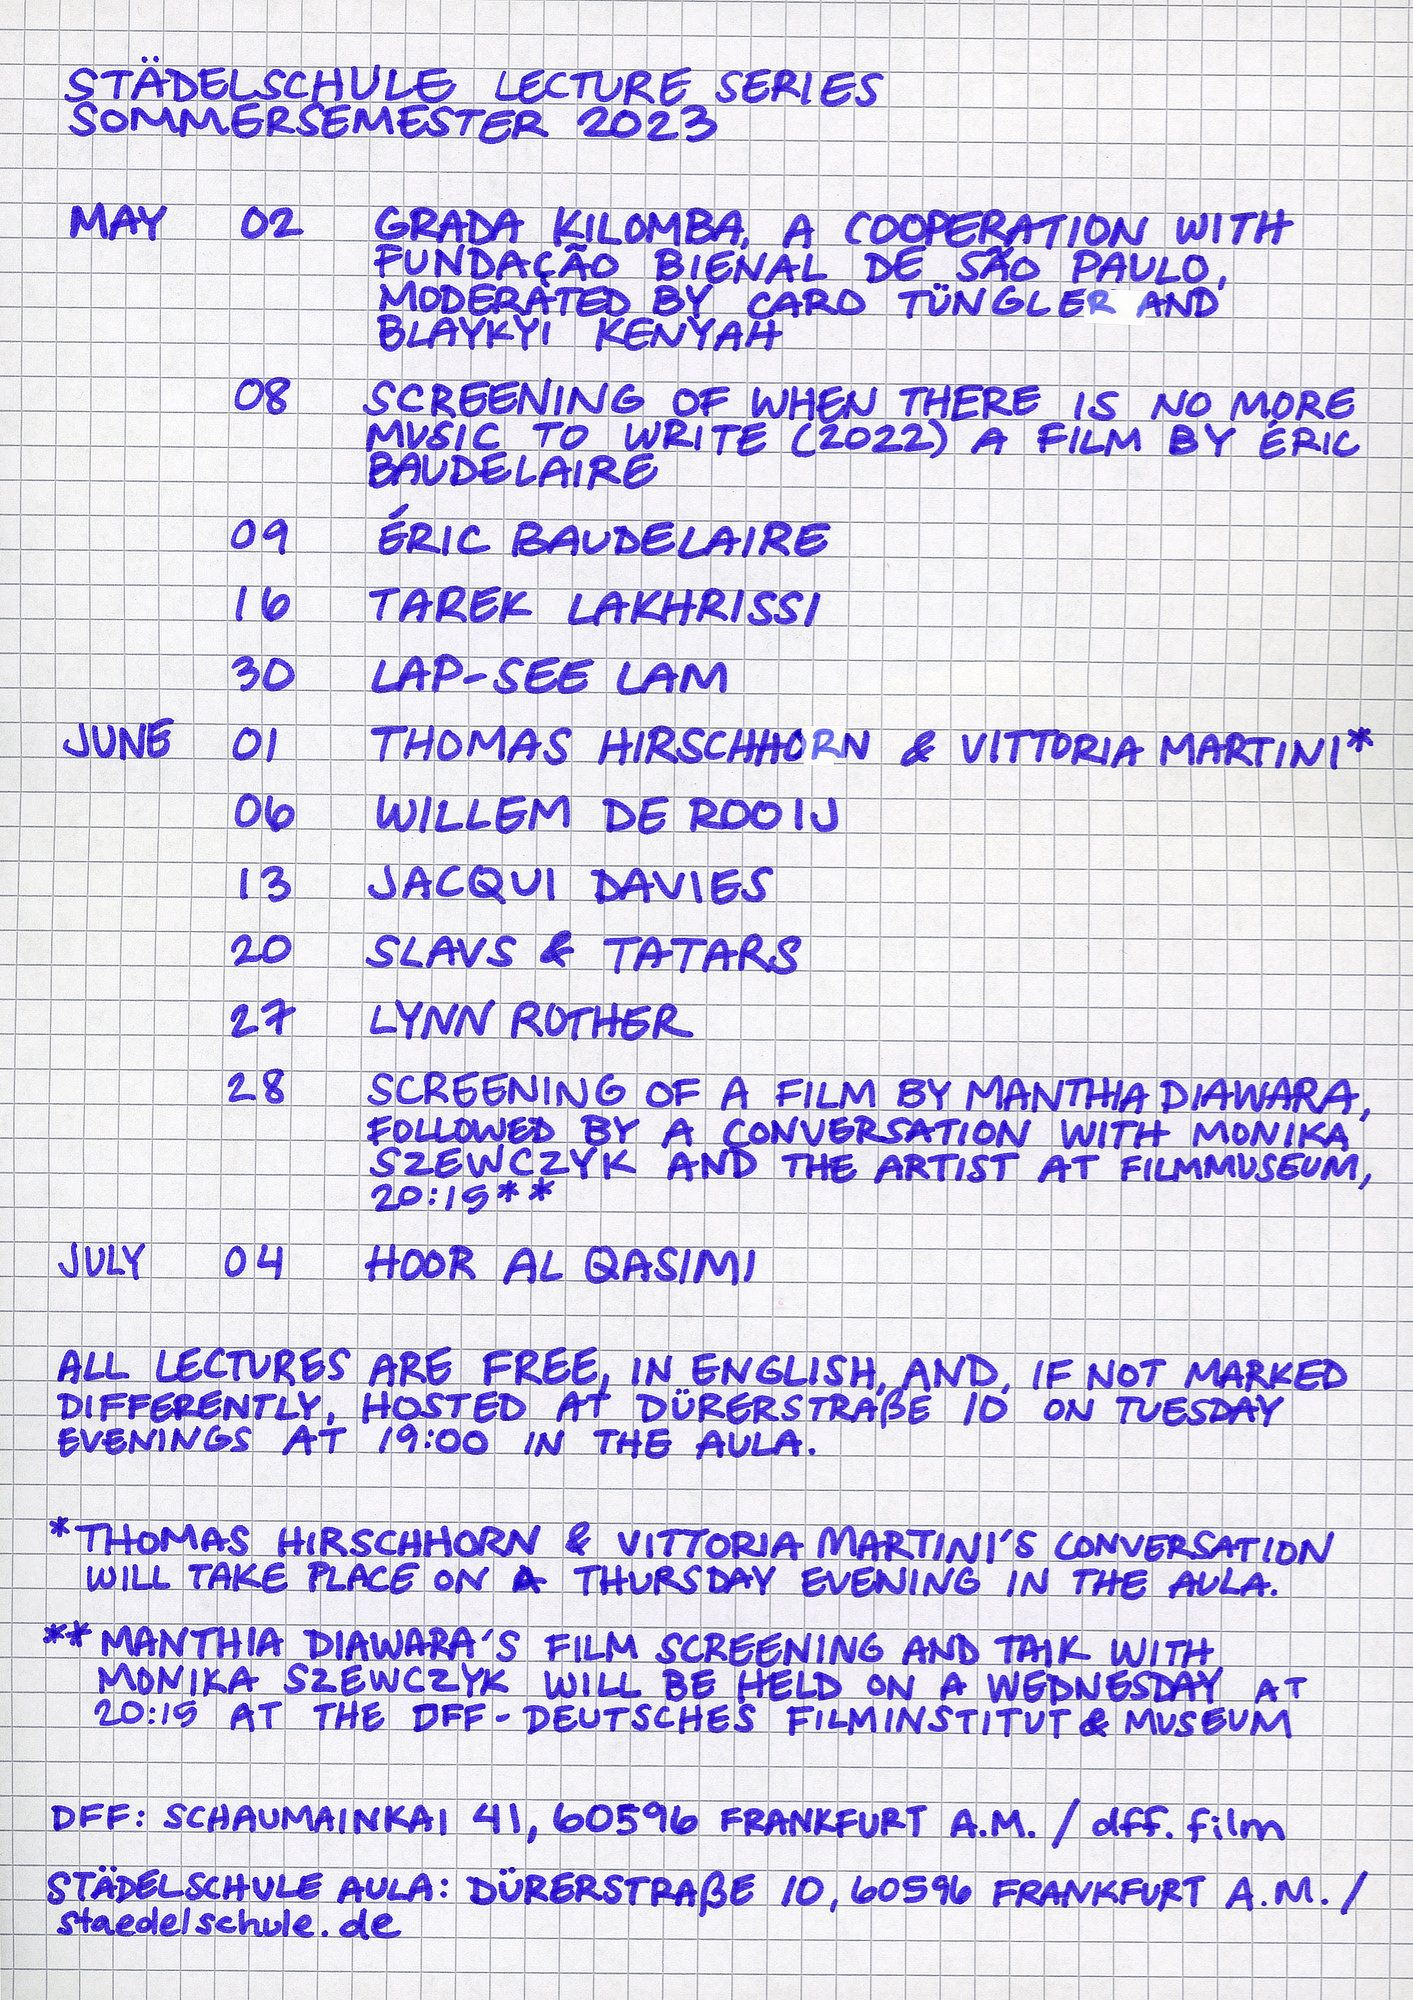 STÄDELSCHULE LECTURE SERIES
SOMMERSEMESTER 2023
MAY 02 GRADA KILOMBA, A COOPERATION WITH
FUNDAÇÃO BIENAL DE SÃO PAULO,
MODERATED BY CARO TÜNGLER AND
BLAYKYI KENYAH
08 SCREENING OF WHEN THERE IS NO MORE
MUSIC TO WRITE (2022) A FILM BY ÉRIC
BAUDELAIRE
09 ÉRIC BAUDELAIRE
16 TAREK LAKHRISSI
30 LAP-SEE LAM
JUNE 01 THOMAS HIRSCHHORN & VITTORIA MARTINI*
06 WILLEM DE ROOIJ
13 JACQUI DAVIES
20 SLAVS & TATARS
27 LYNN ROTHER
28 SCREENING OF A FILM BY MANTHIA DIAWARA,
FOLLOWED BY A CONVERSATION WITH MONIKA
SZEWCZYK AND THE ARTIST AT FILMMUSEUM,
20:15**
JULY 04 HOOR AL QASIMI
ALL LECTURES ARE FREE, IN ENGLISH, AND, IF NOT MARKED
DIFFERENTLY, HOSTED AT DÜRERSTRAßE 10 ON TUESDAY
EVENINGS AT 19:00 IN THE AULA.
*THOMAS HIRSCHHORN & VITTORIA MARTINI'S CONVERSATION
WILL TAKE PLACE ON A THURSDAY EVENING IN THE AULA.
**MANTHIA DIAWARA'S FILM SCREENING AND TALK WITH
MONIKA SZEWCZYK WILL BE HELD ON A WEDNESDAY AT
20:15 AT THE DFF-DEUTSCHES FILMINSTITUT & MUSEUM
DFF: SCHAUMAINKAI 41, 60596 FRANKFURT A.M. / dff.film
STÄDELSCHULE AULA: DÜRERSTRAßE 10, 60596 FRANKFURT A.M. /
staedelschule.de